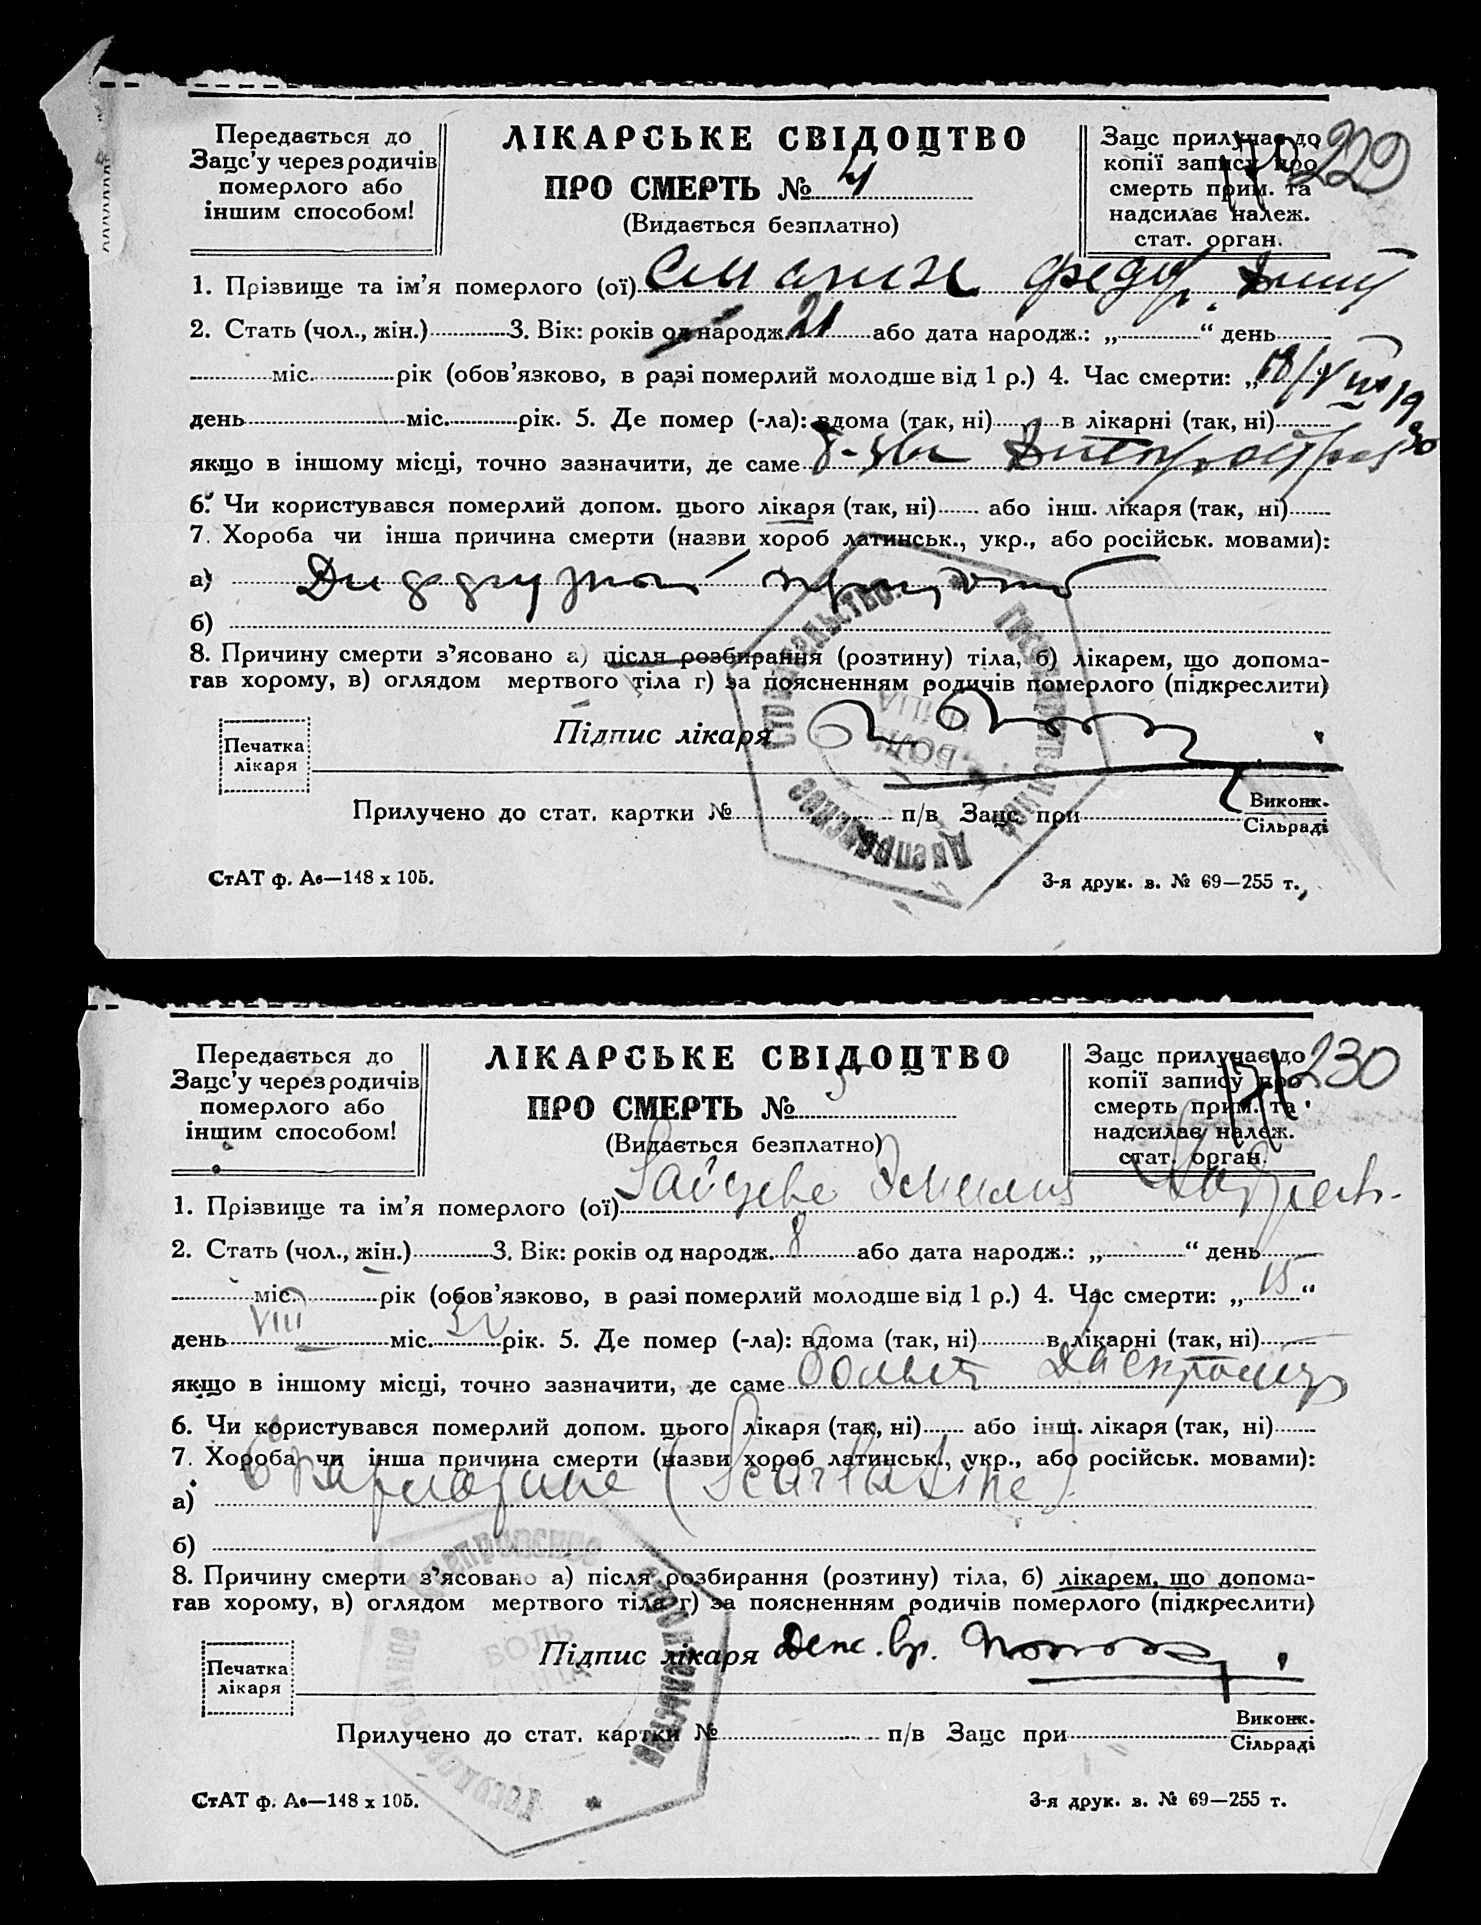 Передається до
Зацс'у через родичів
померлого або
іншим способом!
ЛІКАРСЬКЕ СВІДОЦТВО
ПРО СМЕРТЬ № 4
(Видається безплатно)
Зацс прилучає до
копії запису про
смерть прим. та
надсилає належ.
стат. орган.
222
1. Прізвище та ім'я померлого (ої)
2. Стать (чол., жін.) 3. Вік: років од народж. 21 або дата народж.: „ “ день
міс. рік (обов'язково, в разі померлий молодше від 1 р.) 4. Час смерти: „18/VIII 19
30
день міс. рік. 5. Де помер (-ла): вдома (так, ні) в лікарні (так, ні)
якщо в іншому місці, точно зазначити, де саме
6. Чи користувався померлий допом. цього лікаря (так, ні) або інш. лікаря (так, ні)
7. Хороба чи інша причина смерти (назви хороб латинськ., укр., або російськ. мовами):
а)
б)
8. Причину смерти з'ясовано а) після розбирання (розтину) тіла, б) лікарем, що допома-
гав хорому, в) оглядом мертвого тіла г) за поясненням родичів померлого (підкреслити)
Підпис лікаря
Печатка
лікаря
Прилучено до стат. картки № п/в Зацс при
Виконк.
Сільраді
СтАТ ф. Ав—148 х 105.
3-я друк. з. № 69—255 т.
Днепровское
Строительство
Государственное
Передається до
Зацс'у через родичів
померлого або
іншим способом!
ЛІКАРСЬКЕ СВІДОЦТВО
ПРО СМЕРТЬ № 5
(Видається безплатно)
Зацс прилучає до
копії запису про
смерть прим. та
надсилає належ.
стат. орган.
230
1. Прізвище та ім'я померлого (ої) Зайцева
2. Стать (чол., жін.) 3. Вік: років од народж. 8 або дата народж.: „ “ день
міс. рік (обов'язково, в разі померлий молодше від 1 р.) 4. Час смерти: „15“
день VIII міс. рік. 5. Де помер (-ла): вдома (так, ні) в лікарні (так, ні)
якщо в іншому місці, точно зазначити, де саме
6. Чи користувався померлий допом. цього лікаря (так, ні) або інш. лікаря (так, ні)
7. Хороба чи інша причина смерти (назви хороб латинськ., укр., або російськ. мовами):
а) Скарлатина (Scarlatine)
б)
8. Причину смерти з'ясовано а) після розбирання (розтину) тіла, б) лікарем, що допома-
гав хорому, в) оглядом мертвого тіла г) за поясненням родичів померлого (підкреслити)
Підпис лікаря
Печатка
лікаря
Прилучено до стат. картки № п/в Зацс при
Виконк.
Сільраді
СтАТ ф. Ав—148 х 105.
3-я друк. з. № 69—255 т.
Днепровское
Строительство
БОЛЬ